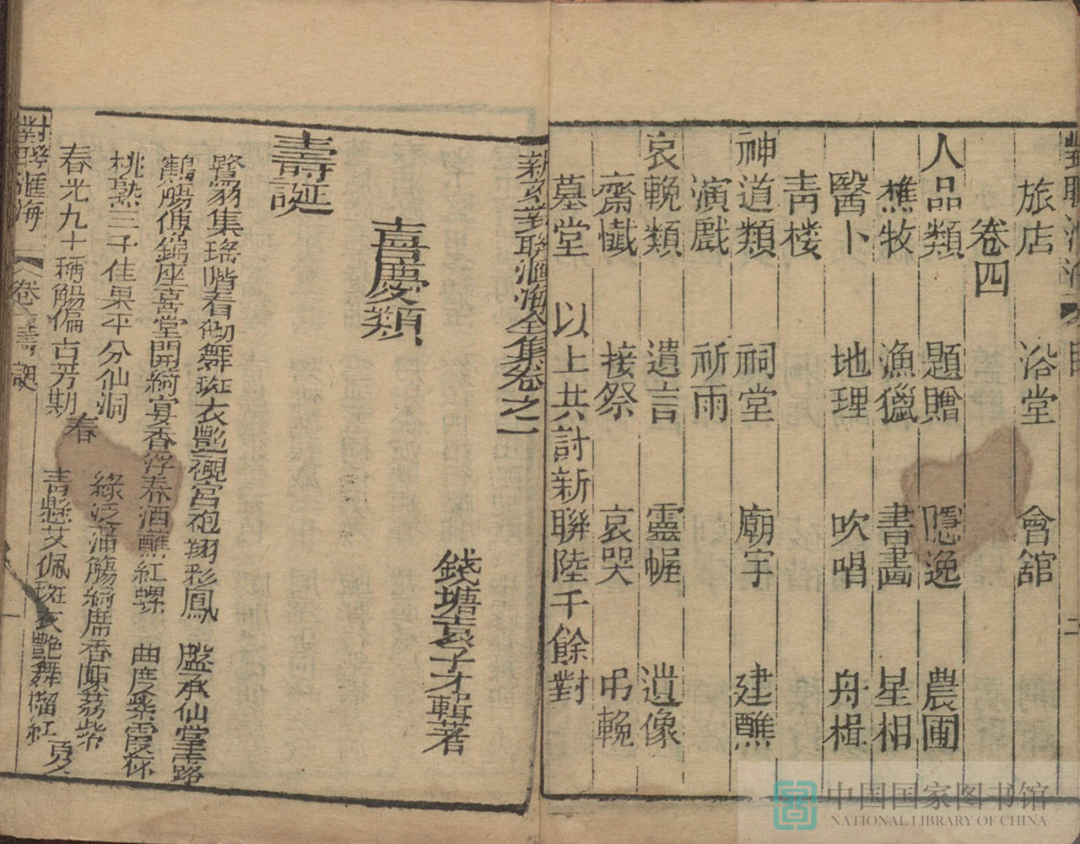 旅店 浴堂 會舘
卷四
人品類 題贈 隱逸 農圃
樵牧 漁獵 書畵 星相
醫卜 地理 吹唱 舟楫
青樓
神道類 祠堂 廟宇 建醮
演戲 祈雨
哀輓類 遺言 靈幄 遺像
齋懺 接祭 哀哭 弔輓
墓堂 以上共計新聯陸千餘對
新刻對聯滙海全集卷之一
錢塘袁子才輯著
喜慶類
壽誕
集瑤階看砌舞斑衣艷襯宮袍翔彩鳳 盤承仙掌露
鶴觴傳錦座喜堂開綺宴香浮春酒蘸紅螺 曲度紫霞
桃熟三千佳果平分仙洞 綠泛蒲觴綺席香陳荔紫
春光九十稱觴偏占芳期 春 青懸艾佩斑衣艷舞榴紅 夏
對聯滙海 卷一壽誕 一
中国国家图书馆
NATIONAL LIBRARY OF CHINA